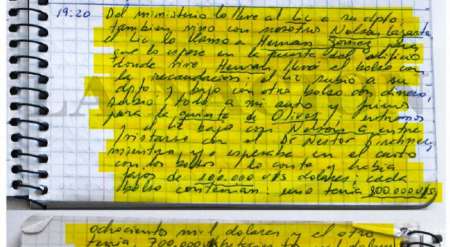 19:20 Del ministerio lo lleve al Lic a su dpto,
tambien vino con nosotros Nelson Lazarte
el Lic lo llamo a Hernan Gomez para
que lo espere en la puerta del edificio
donde vive Hernan, llevó el bolso con
la recaudacion. el Lic subio a su
dpto y bajo con otro bolso con dinero,
subio todo a mi auto y fuimos
para la quinta de Olivos, entramos
el Lic bajo con Nelson a entre
vistarse con el Dr Nestor Kirchner,
mientras yo esperaba en el auto
con los bolsos, los conté y había
fajos de 100.000 u$s dolares, cada
bolso contenian uno tenia 800.000 u$s
ochociento mil dolares y el otro
tenia 700.000